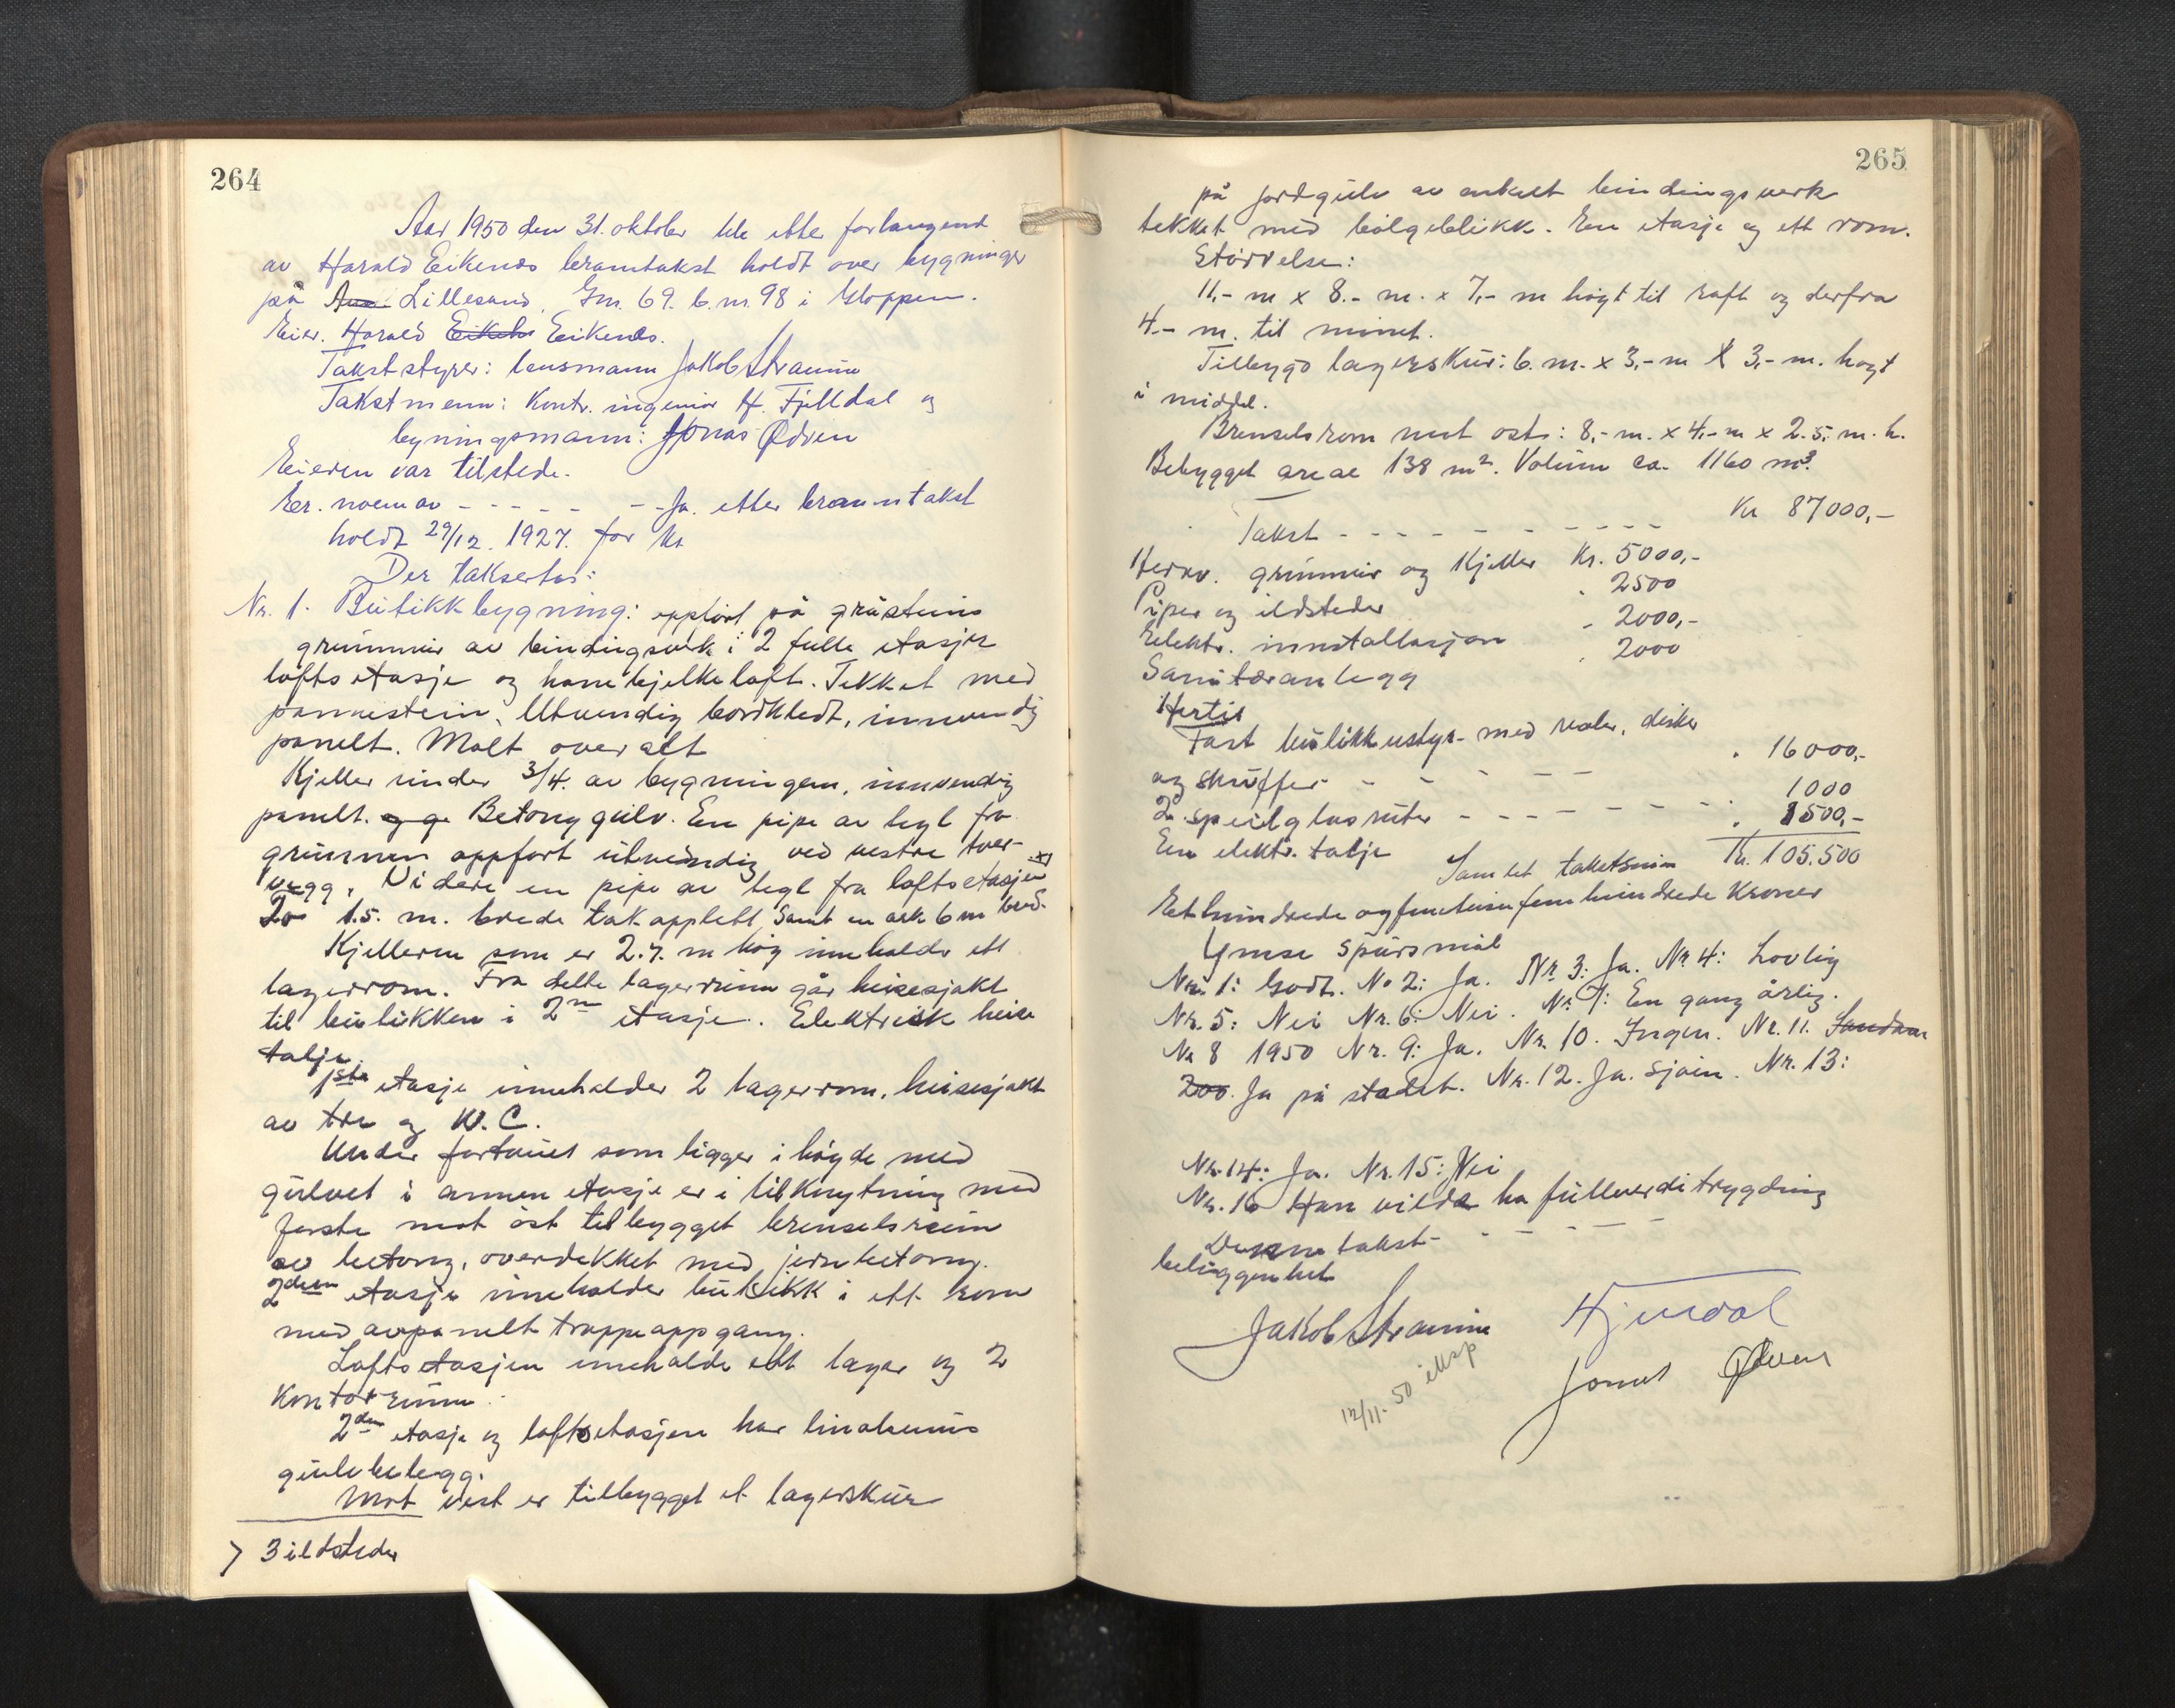 264
Aar 1950 den 31. oktober ble etter forlangend
av Harald Eikenæs branntakst holdt over bygninger
på Lillesand, Gnr. 69. b.nr. 98 i Gloppen.
Eier. Harald Eikenæs.
Takststyrer: lensmann Jakob Straume
Takstmenn: Kontr. ingeniør H. Fjelldal og
byningsmann: Jonas Ødven
Eieren var tilstede.
Er. noen av - - - - - - - Ja. etter branntakst
holdt 29/12. 1927. for kr
Der taksertes:
Nr. 1. Butikkbygning: oppført på gråsteins
grunnmur av bindingsverk i 2 fulle etasjer
loftsetasje og hanebjelkeloft. Tekket med
pannestein, Utvendig bordkledt, innvendig
panelt. Malt overalt
Kjeller under 3/4. av bygningen, innvendig
panelt. Betonggulv. En pipe av tegl fra
grunnen oppført utvendig ved vestre tver-
vegg. Videre en pipe av tegl fra loftsetasjen x)
1.5. m. brede takopplett samt en ark 6 m bred.
Kjelleren som er 2.7. m høg inneholder ett
lagerrom. Fra dette lagerrum går heisesjakt
til butikken i 2en etasje. Elektrisk heise
talje.
1ste etasje inneholder 2 lagerrom, heisesjakt
av tre og W.C.
Under fortauet som ligger i høgde med
gulvet i annen etasje er i tilknytning med
første mot øst tilbygget brenselsrum
av betong, overdekket med jernbetong.
2den etasje inneholder butikk i ett rom
med avpanelt trappeoppgang.
Loftsetasjen inneholder ett lager og 2
kontorrum.
2den etasje og loftsetasjen har linoleums
gulvbelegg.
Mot vest er tilbygget et lagerskur
3 ildsteder
265
på jordgulv av enkelt bindingsverk
tekket med bølgeblikk. En etasje og ett rom.
Størrelse:
11,- m x 8.- m. x 7,- m høgt til raft og derfra
4.- m. til mønet.
Tilbygd lagerskur: 6. m. x 3,- m x 3,- m. høgt
i middel.
Brenselsrom mot øst: 8,- m. x 4,- m x 2.5. m. h.
Bebygget areal 138 m². Volum ca. 1160 m³.
Takst - - - - - - - - - Kr 87000,-
Herav. grunnmur og kjeller Kr. 5000,-
Piper og ildsteder " 2500
Elektr. innstallasjon " 2000,-
Sanitæranlegg " 2000
Hertil
Fast butikkustyr med reoler, disker
og skuffer - - - - - " 16000,-
2. speilglasruter - - - - - - - - 1000
En elektr. talje " 1500,-
Samlet takstsum Kr. 105.500
Ethundrede ogfemtusenfemhundrede kroner
Ymse spursmål
Nr. 1: Godt. No 2: Ja. Nr 3: Ja. Nr 4: Lovlig
Nr. 5: Nei Nr. 6: Nei. Nr 7: En gang årlig.
Nr 8 1950 Nr. 9: Ja. Nr. 10. Ingen. Nr. 11.
Ja på stedet. Nr. 12. Ja. Sjøen. Nr. 13:
Nr. 14: Ja. Nr. 15: Nei
Nr. 16 Han vilde ha fullverditrygding
Denne takst - - - - -
beliggenhet
Jakob Straume H Fjelldal
Jonas Ødven
12/11. 50 eksp